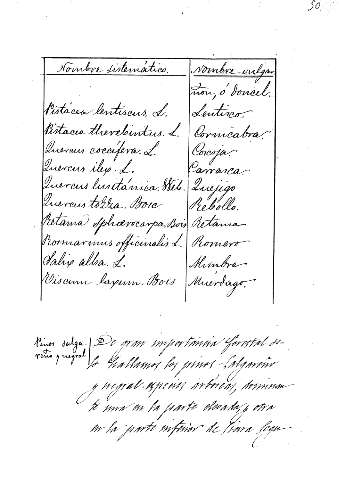 30.
Nombre sistemático. Nombre vulgar
ron, ó Doncel.
Pistacia lentiscus. L. Lentisco.
Pistacia therebintus. L. Cornicabra.
Quercus coccifera. L. Coscoja.
Quercus ilex. L. Carrasca.
Quercus lusitanica. Web. Quejigo
Quercus tozza. Bosc Rebollo.
Retama sphaerocarpa. Bois Retama
Rosmarinus officinalis L. Romero
Salix alba. L. Mimbre
Viscum laxum. Bois Muérdago.
Pinos salga-
reño y negral
De gran importancia forestal so-
lo hallamos los pinos salgareño
y negral especies arbóreas, dominan-
te una en la parte elevada, y otra
en la parte inferior de